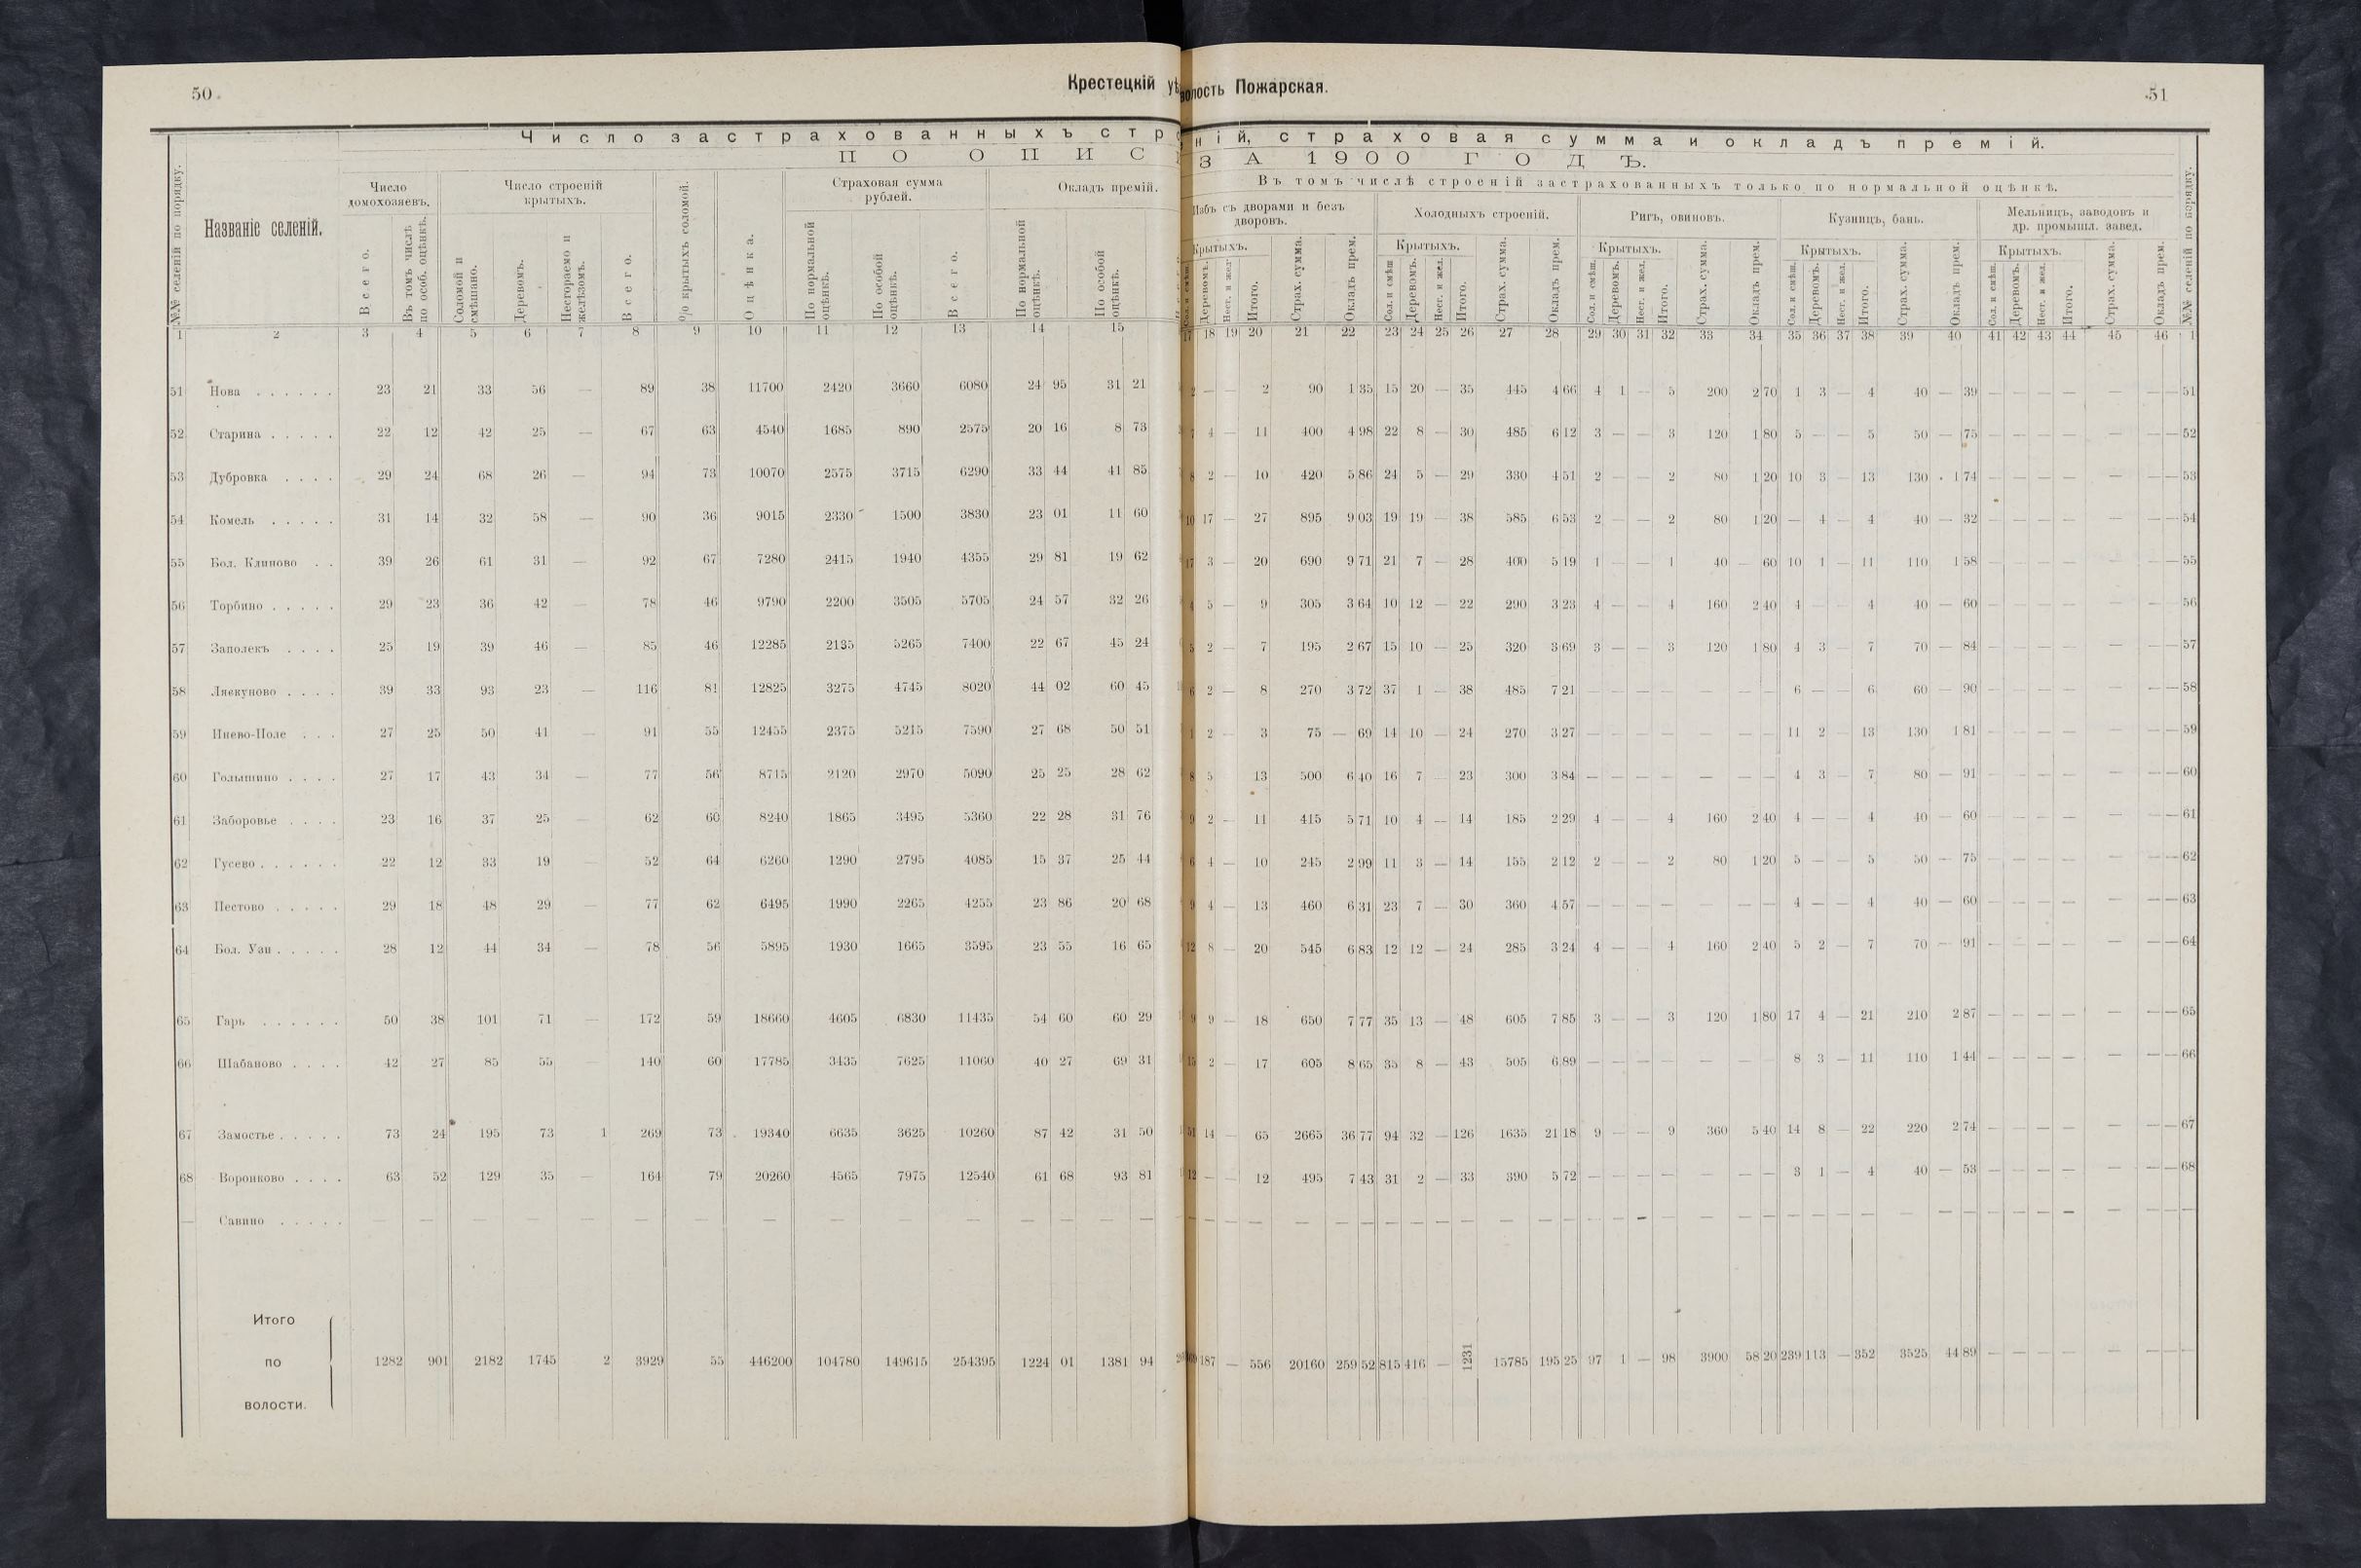 50
Крестецкій уѣ
волость Пожарская.
51
Число застрахованныхъ стр
ній, страховая сумма и окладъ премій.
ПО ОПИС
ЗА 1900 ГОДЪ.
№№ селеній по порядку. Названіе селеній. Число домохозяевъ. Число строеній крытыхъ. % крытыхъ соломой. Оцѣнка. Страховая сумма рублей. Окладъ премій.
Всего. Въ томъ числѣ по особ. оцѣнкѣ. Соломой и смѣшано. Деревомъ. Несгораемо и желѣзомъ. Всего. По нормальной оцѣнкѣ. По особой оцѣнкѣ. Всего. По нормальной оцѣнкѣ. По особой оцѣнкѣ.
Въ томъ числѣ строеній застрахованныхъ только по нормальной оцѣнкѣ.
Избъ съ дворами и безъ дворовъ. Холодныхъ строеній. Ригъ, овиновъ. Кузницъ, бань. Мельницъ, заводовъ и др. промышл. завед. №№ селеній по порядку.
Крытыхъ. Крытыхъ. Крытыхъ. Крытыхъ. Крытыхъ.
Деревомъ. Несг. и жел. Итого. Страх. сумма. Окладъ прем. Сол. и смѣш. Деревомъ. Несг. и жел. Итого. Страх. сумма. Окладъ прем. Сол. и смѣш. Деревомъ. Несг. и жел. Итого. Страх. сумма. Окладъ прем. Сол. и смѣш. Деревомъ. Несг. и жел. Итого. Страх. сумма. Окладъ прем. Сол. и смѣш. Деревомъ. Несг. и жел. Итого. Страх. сумма. Окладъ прем.
1 2 3 4 5 6 7 8 9 10 11 12 13 14 15 18 19 20 21 22 23 24 25 26 27 28 29 30 31 32 33 34 35 36 37 38 39 40 41 42 43 44 45 46 1
51 Нова . . . . . . 23 21 33 56 — 89 38 11700 2420 3660 6080 24 95 31 21 2 — — 2 90 1 35 15 20 — 35 445 4 66 4 1 — 5 200 2 70 1 3 — 4 40 — 39 — — — — — — — 51
52 Старина . . . . . 22 12 42 25 — 67 63 4540 1685 890 2575 20 16 8 73 7 4 — 11 400 4 98 22 8 — 30 485 6 12 3 — — 3 120 1 80 5 — — 5 50 — 75 — — — — — — — 52
53 Дубровка . . . . 29 24 68 26 — 94 73 10070 2575 3715 6290 33 44 41 85 8 2 — 10 420 5 86 24 5 — 29 330 4 51 2 — — 2 80 1 20 10 3 — 13 130 1 74 — — — — — — — 53
54 Комель . . . . . 31 14 32 58 — 90 36 9015 2330 1500 3830 23 01 11 60 10 17 — 27 895 9 03 19 19 — 38 585 6 53 2 — — 2 80 1 20 — 4 — 4 40 — 32 — — — — — — — 54
55 Бол. Клиново . . 39 26 61 31 — 92 67 7280 2415 1940 4355 29 81 19 62 17 3 — 20 690 9 71 21 7 — 28 400 5 19 1 — — 1 40 — 60 10 1 — 11 110 1 58 — — — — — — — 55
56 Торбино . . . . . 29 23 36 42 — 78 46 9790 2200 3505 5705 24 57 32 26 4 5 — 9 305 3 64 10 12 — 22 290 3 23 4 — — 4 160 2 40 4 — 4 40 — 60 — — — — — — — 56
57 Заполекъ . . . . 25 19 39 46 — 85 46 12285 2135 5265 7400 22 67 45 24 5 2 — 7 195 2 67 15 10 — 25 320 3 69 3 — — 3 120 1 80 4 3 — 7 70 — 84 — — — — — — — 57
58 Лякуново . . . . 39 33 93 23 — 116 81 12825 3275 4745 8020 44 02 60 45 6 2 — 8 270 3 72 37 1 — 38 485 7 21 — — — — — — — 6 — — 6 60 — 90 — — — — — — — 58
59 Пнево-Поле . . . 27 25 50 41 — 91 55 12455 2375 5215 7590 27 68 50 51 1 2 — 3 75 — 69 14 10 — 24 270 3 27 — — — — — — — 11 2 — 13 130 1 81 — — — — — — — 59
60 Голышино . . . . 27 17 43 34 — 77 56 8715 2120 2970 5090 25 25 28 62 8 5 — 13 500 6 40 16 7 — 23 300 3 84 — — — — — — — 4 3 — 7 80 — 91 — — — — — — — 60
61 Заборовье . . . . 23 16 37 25 — 62 60 8240 1865 3495 5360 22 28 31 76 9 2 — 11 415 5 71 10 4 — 14 185 2 29 4 — — 4 160 2 40 4 — — 4 40 — 60 — — — — — — — 61
62 Гусево . . . . . . 22 12 33 19 — 52 64 6260 1290 2795 4085 15 37 25 44 6 4 — 10 245 2 99 11 3 — 14 155 2 12 2 — — 2 80 1 20 5 — — 5 50 — 75 — — — — — — — 62
63 Пестово . . . . . 29 18 48 29 — 77 62 6495 1990 2265 4255 23 86 20 68 9 4 — 13 460 6 31 23 7 — 30 360 4 57 — — — — — — — 4 — — 4 40 — 60 — — — — — — — 63
64 Бол. Узи . . . . . 28 12 44 34 — 78 56 5895 1930 1665 3595 23 55 16 65 12 8 — 20 545 6 83 12 12 — 24 285 3 24 4 — — 4 160 2 40 5 2 — 7 70 — 91 — — — — — — — 64
65 Гарь . . . . . . 50 38 101 71 — 172 59 18660 4605 6830 11435 54 60 60 29 9 9 — 18 650 7 77 35 13 — 48 605 7 85 3 — — 3 120 1 80 17 4 — 21 210 2 87 — — — — — — — 65
66 Шабаново . . . . 42 27 85 55 — 140 60 17785 3435 7625 11060 40 27 69 31 15 2 — 17 605 8 65 35 8 — 43 505 6 89 — — — — — — 8 3 — 11 110 1 44 — — — — — — — 66
67 Замостье . . . . . 73 24 195 73 1 269 73 19340 6635 3625 10260 87 42 31 50 51 14 — 65 2665 36 77 94 32 — 126 1635 21 18 9 — — 9 360 5 40 14 8 — 22 220 2 74 — — — — — — — 67
68 Воронково . . . . 63 52 129 35 — 164 79 20260 4565 7975 12540 61 68 93 81 12 — — 12 495 7 43 31 2 — 33 390 5 72 — — — — — — — 3 1 — 4 40 — 53 — — — — — — — 68
— Савино . . . . . — — — — — — — — — — — — — — — — — — — — — — — — — — — — — — — — — — — — — — — — — — — — — — —
Итого
по 1282 901 2182 1745 2 3929 55 446200 104780 149615 254395 1224 01 1381 94 187 — 556 20160 259 52 815 416 — 1231 15785 195 25 97 1 — 98 3900 58 20 239 113 — 352 3525 44 89 — — — — — — — —
волости.